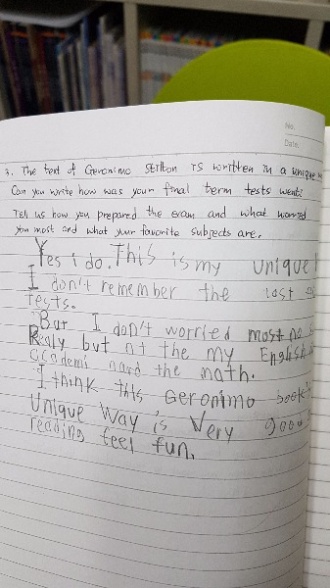 No.
Date.
3. The text of Geronimo Stilton is written in a unique
Can you write how was your final term tests went?
Tell us how you prepared the exam and what worried
you most and what your favorite subjects are.
Yes i do. This is my unique
I don't remember the last
Tests.
But I don't worried most no
Realy but nt the my English
academi nard the math.
I think this Geronimo book
Unique Way is Very good
reading feel fun.